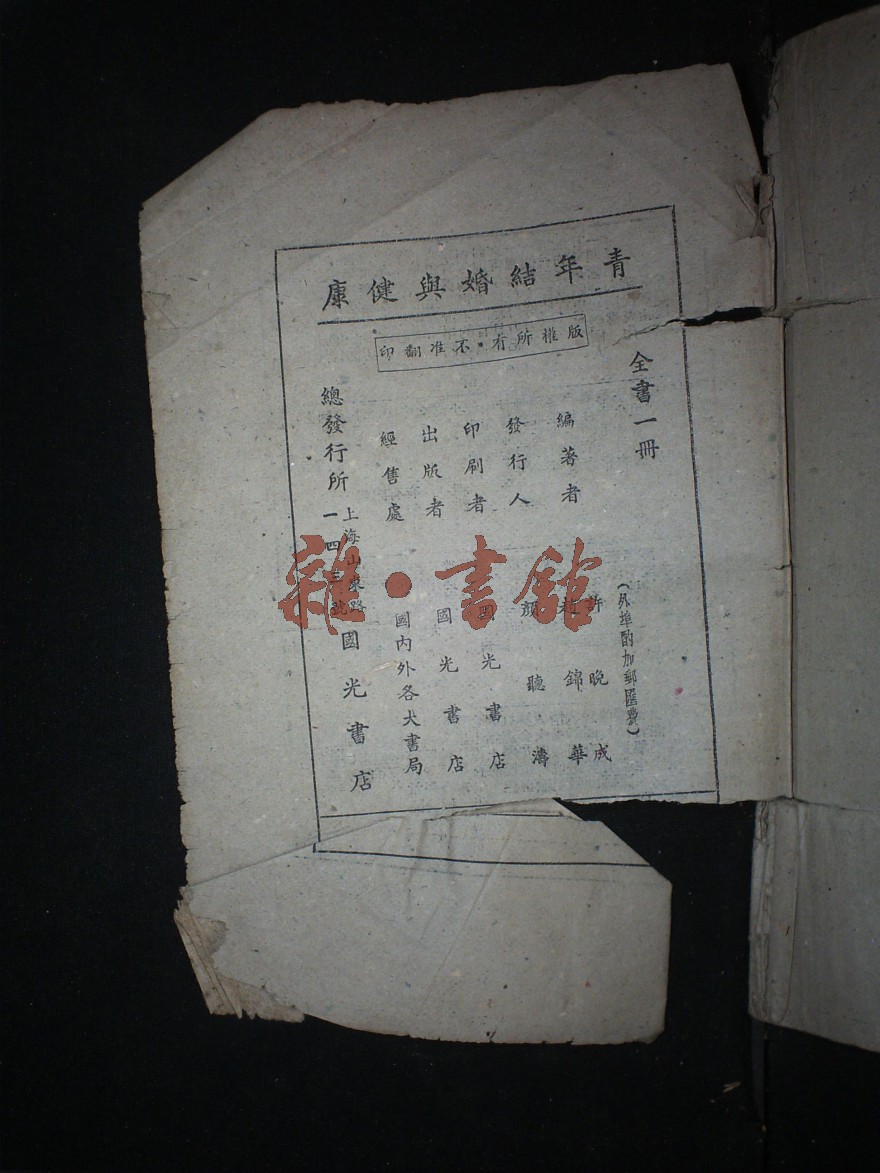 青年結婚與健康
版權所有・不准翻印
全書一冊
(外埠酌加郵匯費)
編著者
許晚成
錦華
發行人 聽濤
印刷者 國光書店
出版者 國光書店
經售處 國內外各大書局
總發行所
上海山東路
一四三號
國光書店
雜・書館